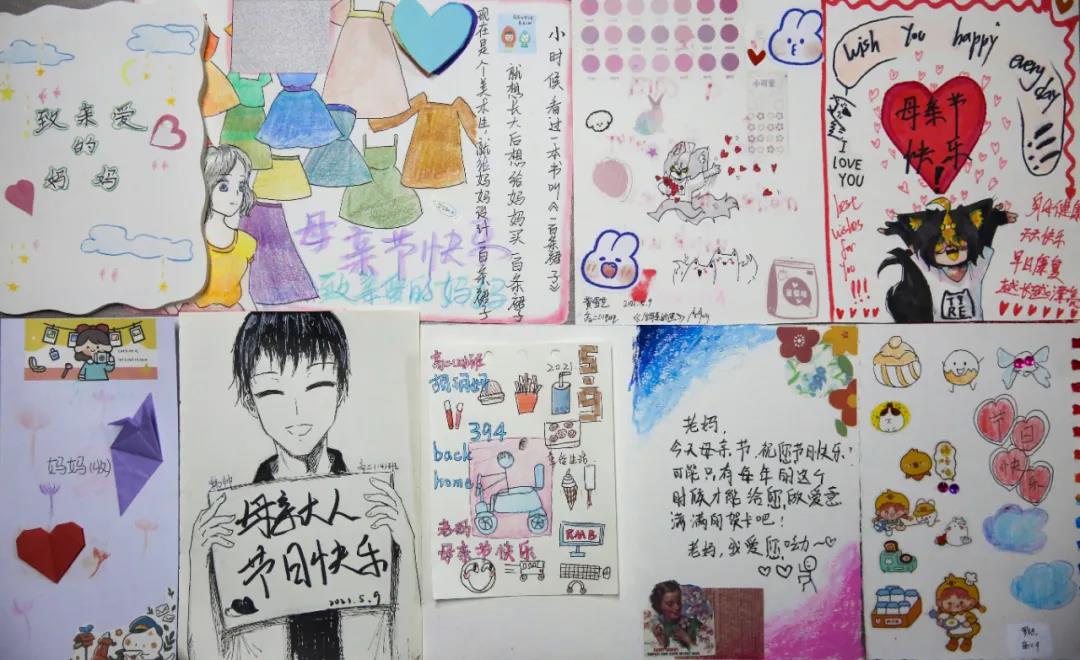 致亲爱
的
妈妈
小时候看过一本书叫《一百条裙子》
就想长大后想给妈妈买一百条裙子
现在是个美术生，就给妈妈设计一百条裙子
母亲节快乐
致亲爱的妈妈
2021.5.9
wish You happy
every day
母亲节
快乐!
I
LOVE
YOU
best
wishes
for
you
!!!
身体健康
天天快乐
早日康复
越长越漂亮
妈妈(收)
母亲大人
节日快乐
2021.5.9
2021
5.9
394
back
home
幸福生活
RMB
老妈
母亲节快乐
老妈，
今天母亲节，祝您节日快乐！
可能只有每年的这个
时候才能给您献爱意
满满的贺卡吧！
老妈，我爱您呦~
节日
快乐